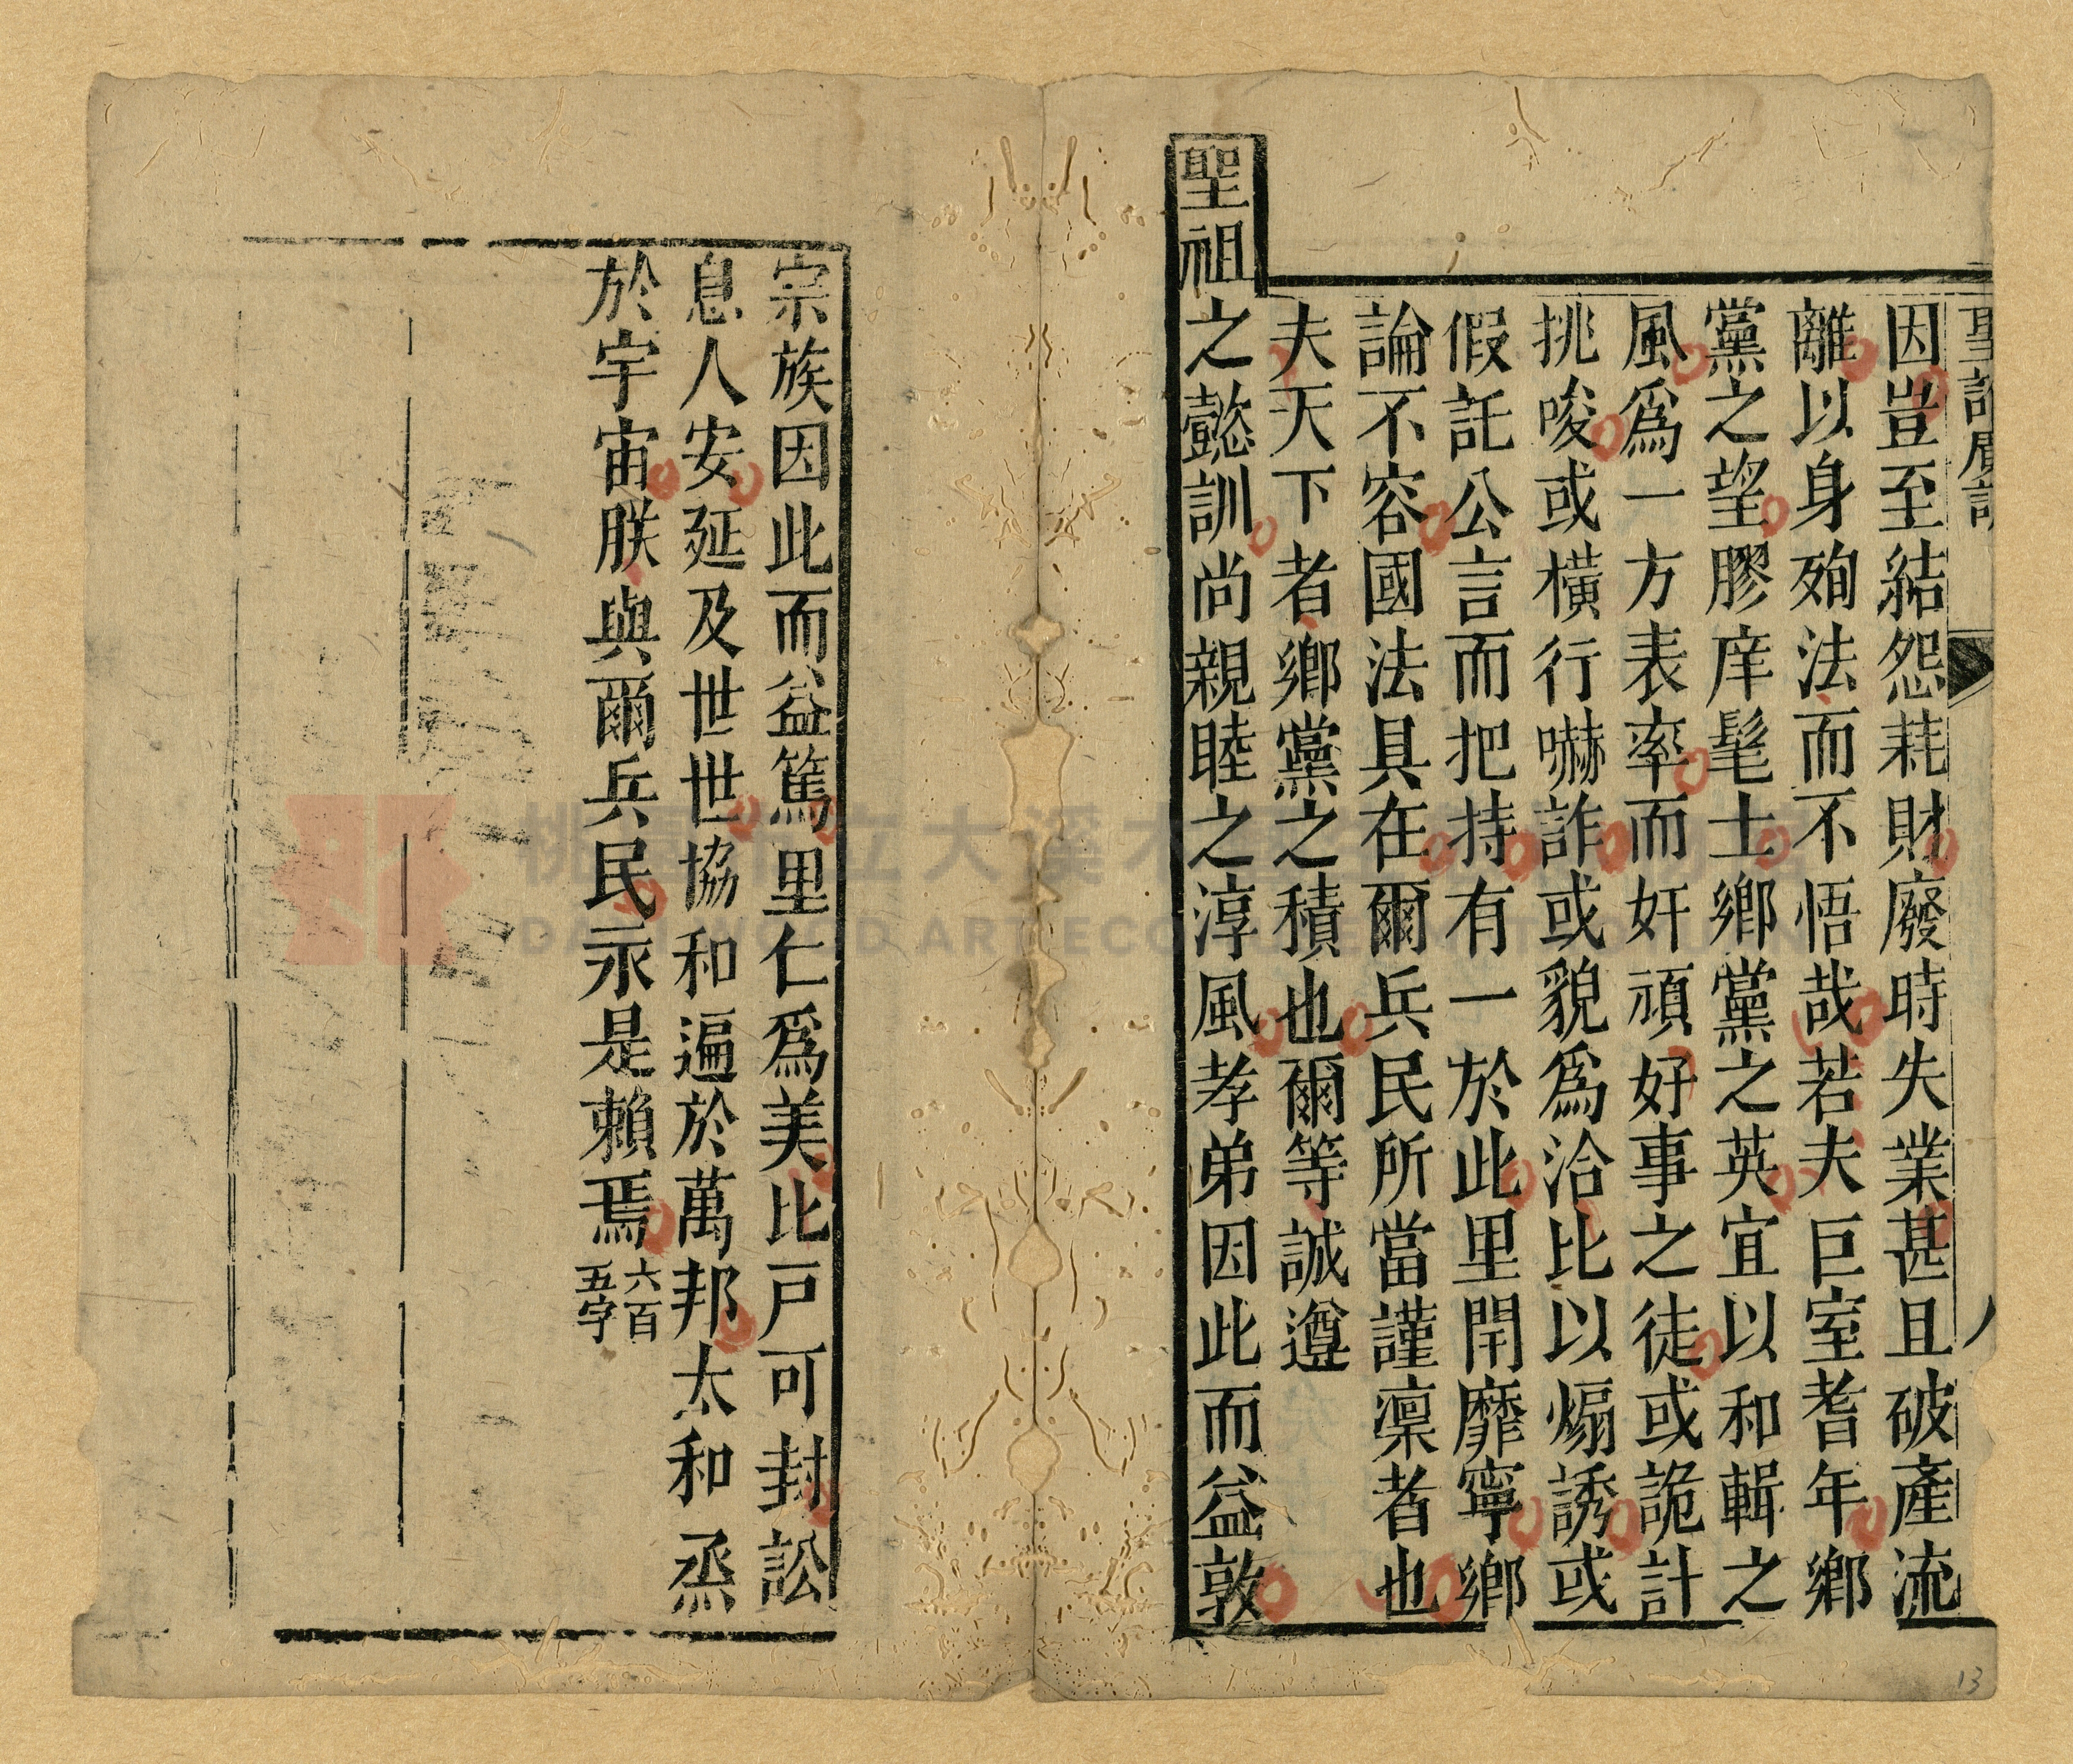 聖諭廣訓
因豈至結怨耗財廢時失業甚且破產流
離以身殉法而不悟哉若夫巨室耆年鄉
黨之望膠庠髦士鄉黨之英宜以和輯之
風爲一方表率而奸頑好事之徒或詭計
挑唆或橫行嚇詐或貌爲洽比以煽誘或
假託公言而把持有一於此里閈靡寧鄉
論不容國法具在爾兵民所當謹凜者也
夫天下者鄉黨之積也爾等誠遵
聖祖之懿訓尚親睦之淳風孝弟因此而益敦
宗族因此而益篤里仁爲美比戸可封訟
息人安延及世世協和遍於萬邦太和烝
於宇宙朕與爾兵民永是賴焉六百五字
13